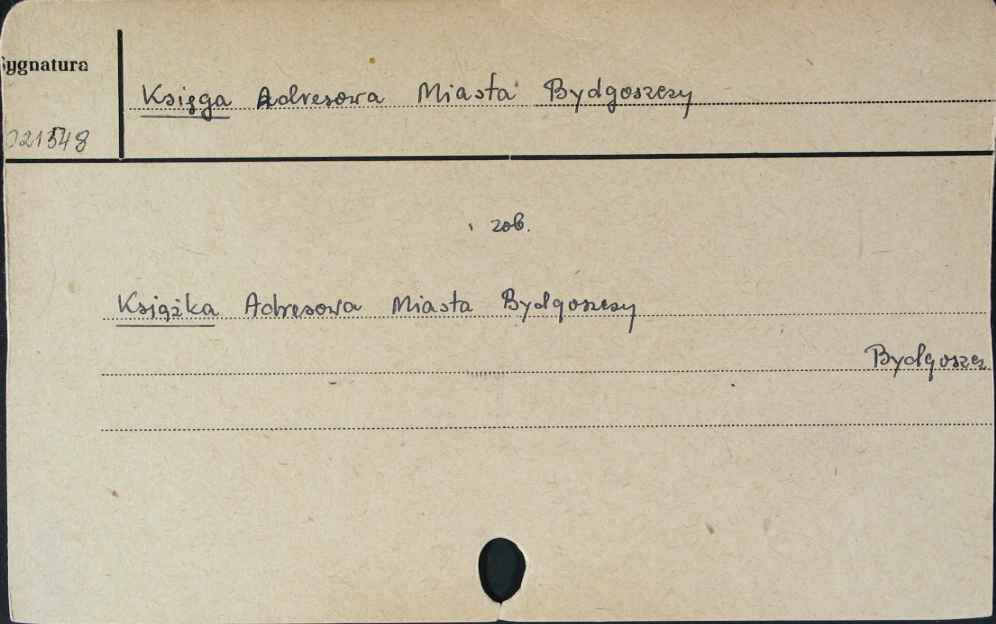 Sygnatura
Księga Adresowa Miasta Bydgoszczy
021548
zob.
Książka Adresowa Miasta Bydgoszczy
Bydgoszcz